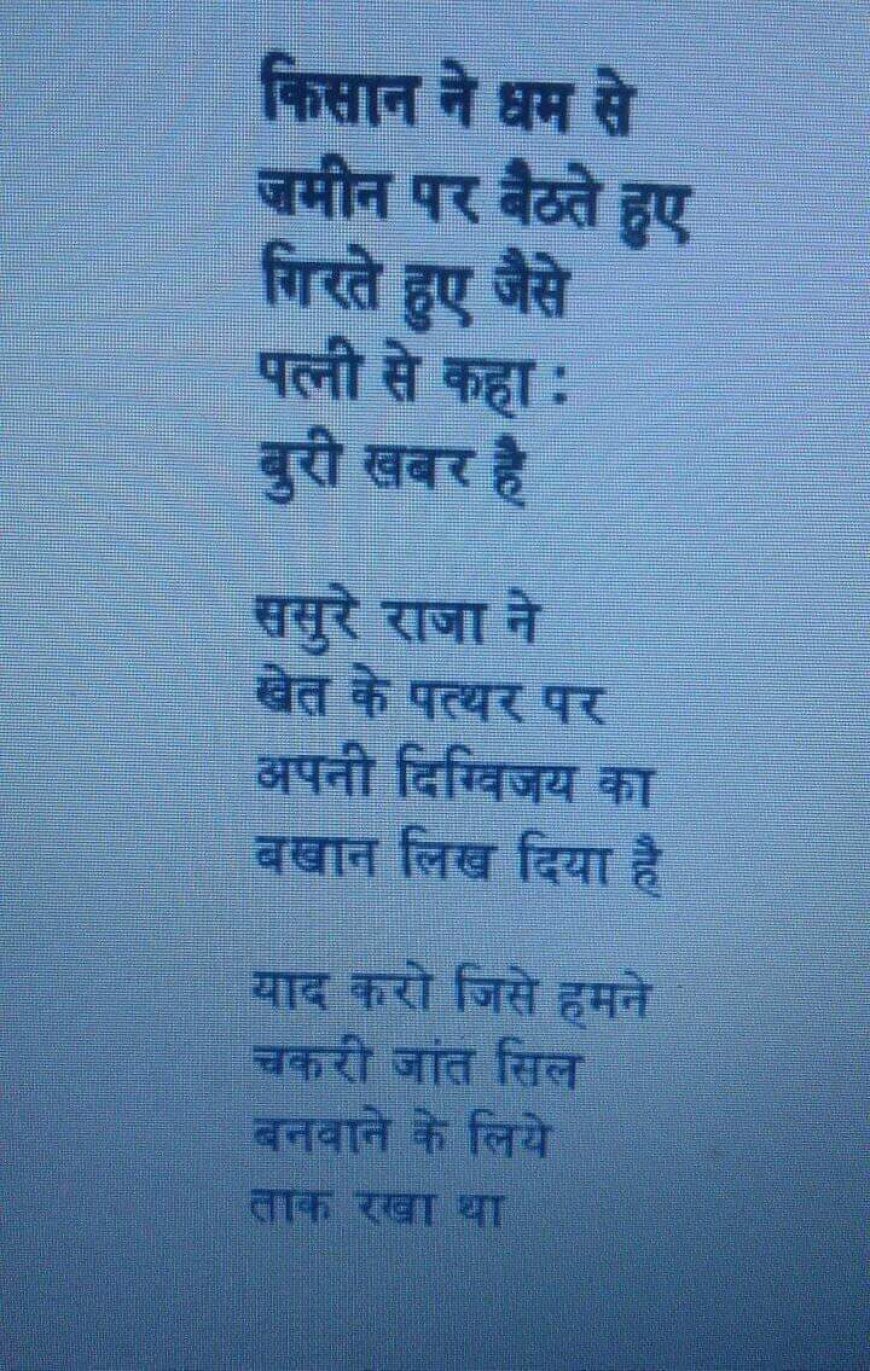 किसान ने धम से
जमीन पर बैठते हुए
गिरते हुए जैसे
पत्नी से कहा :
बुरी खबर है
ससुरे राजा ने
खेत के पत्थर पर
अपनी दिग्विजय का
बखान लिख दिया है
याद करो जिसे हमने
चकरी जांत सिल
बनवाने के लिये
ताक रखा था